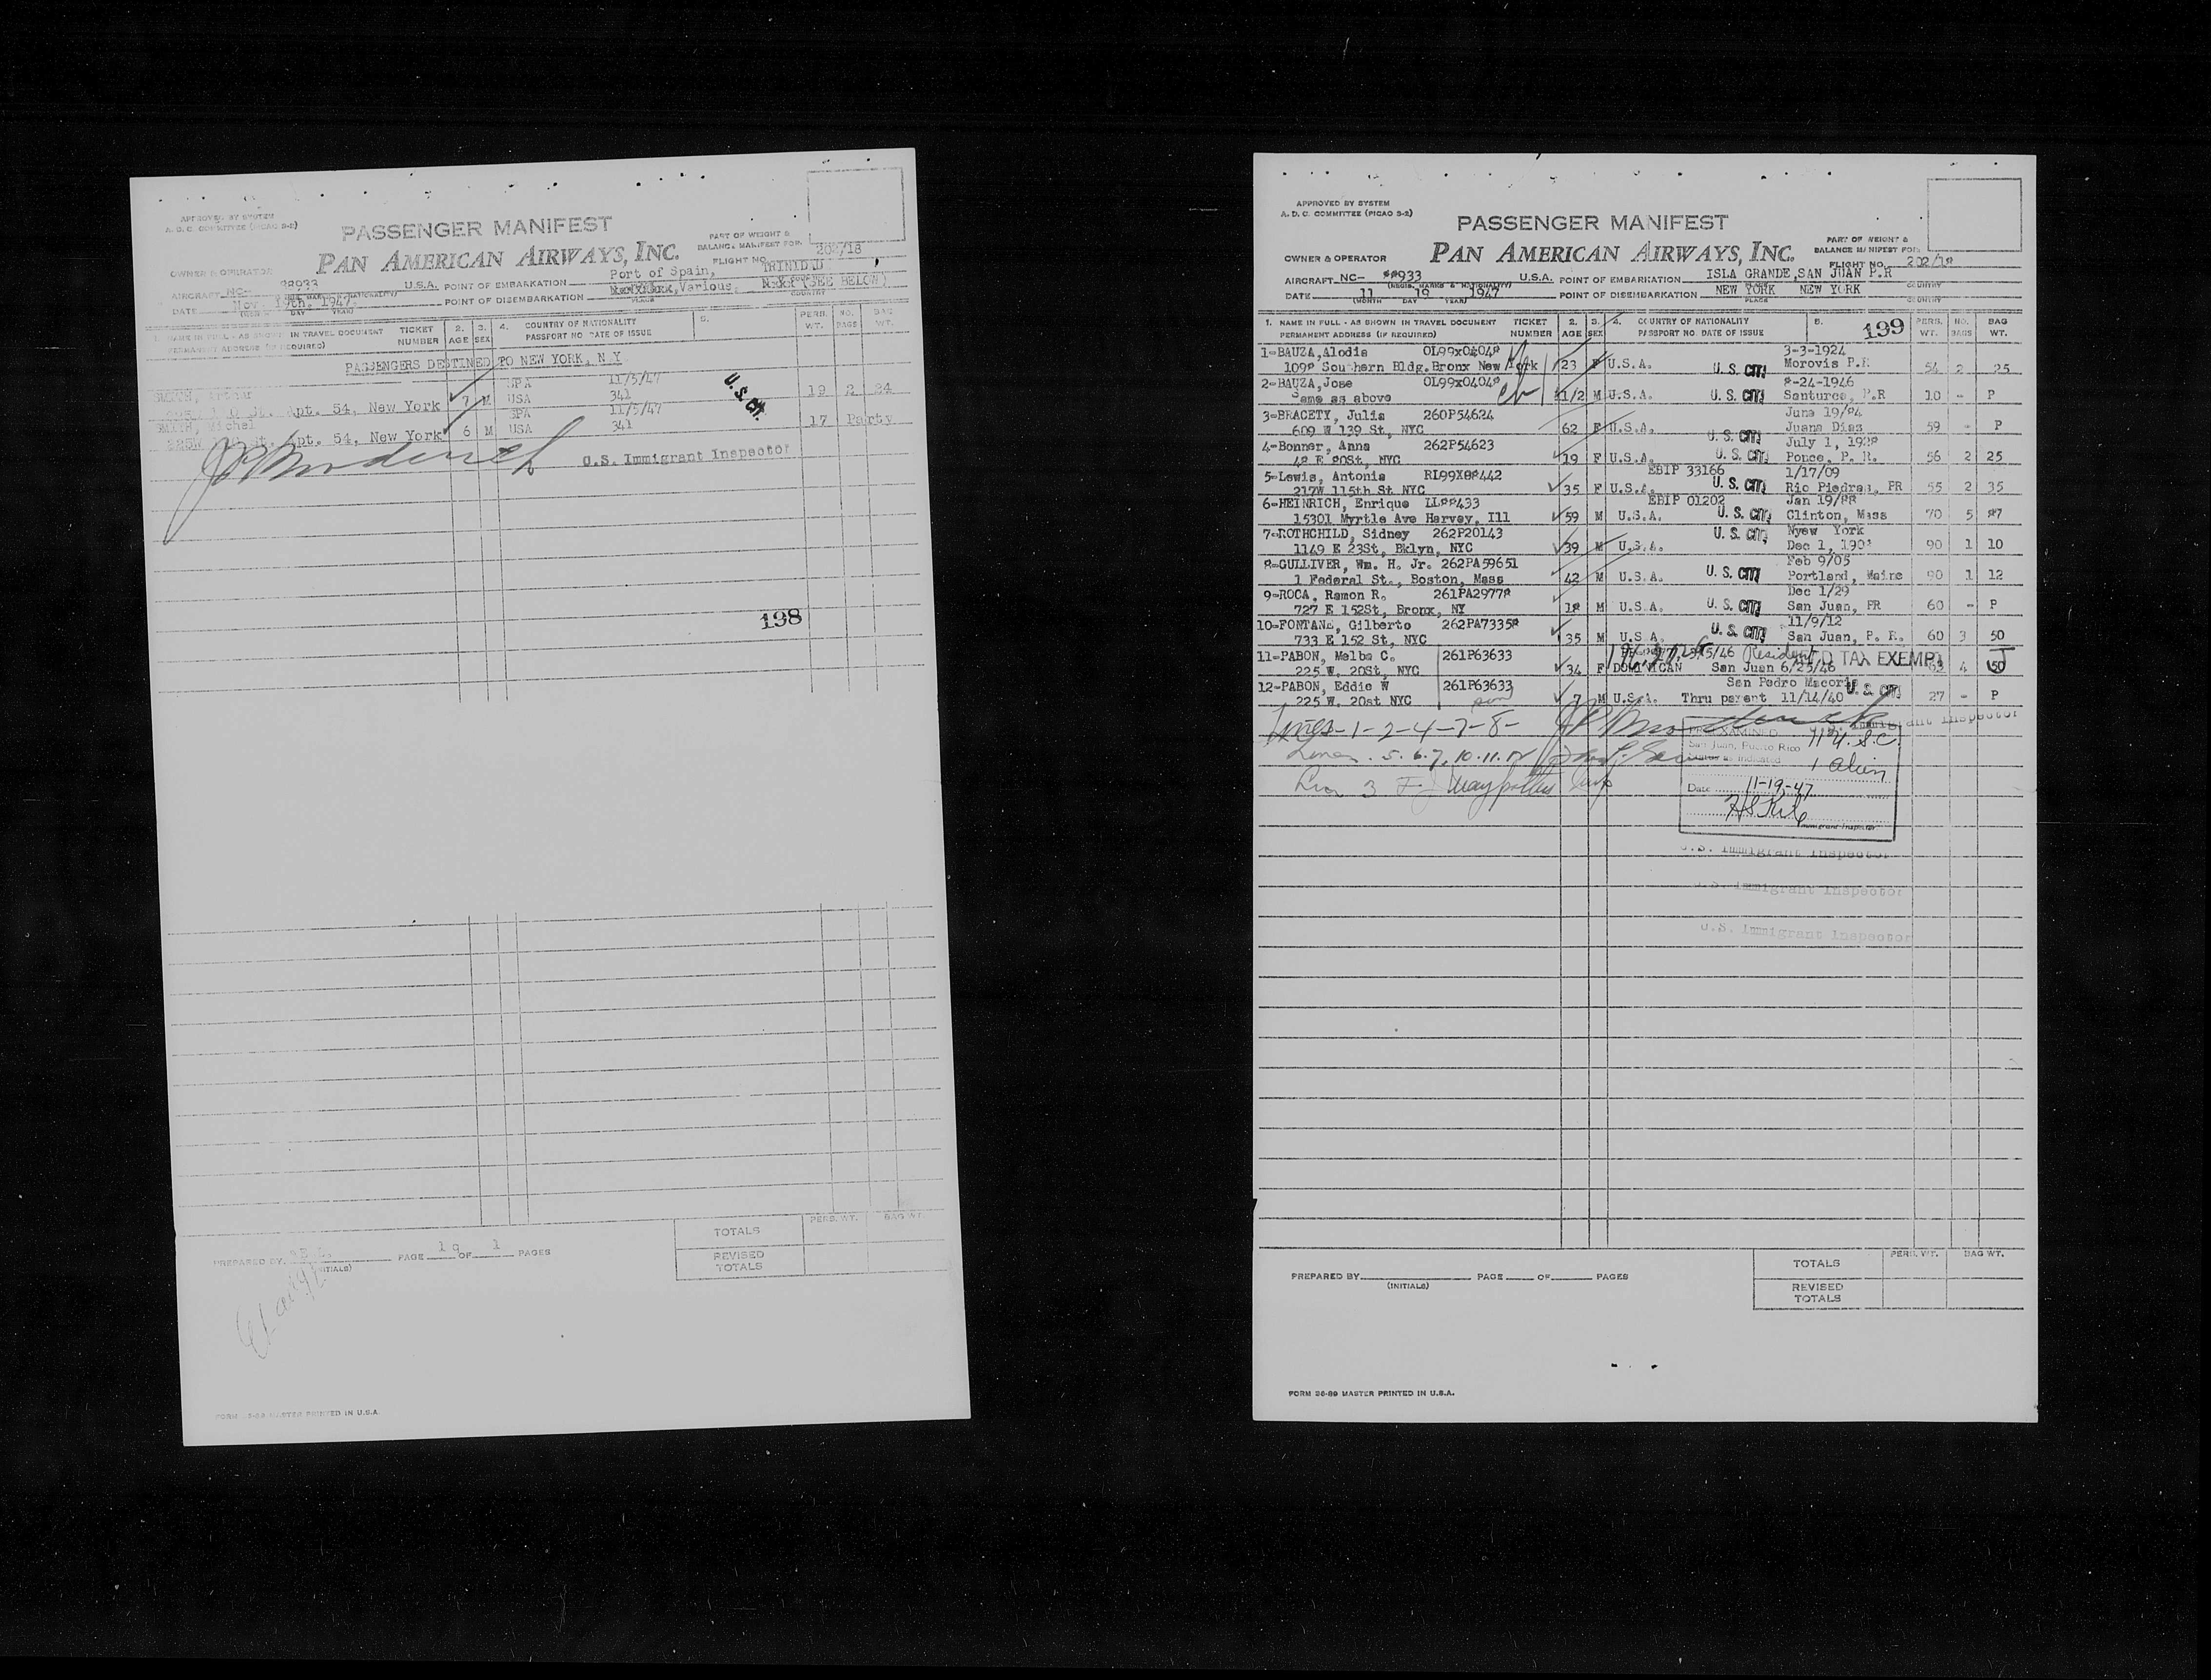 APPROVED BY SYSTEM
A. D. C. COMMITTEE (PICAO S-2)
PASSENGER MANIFEST
PAN AMERICAN AIRWAYS, INC.
PART OF WEIGHT &
BALANCE MANIFEST FOR
FLIGHT NO. 202/18
OWNER & OPERATOR
Port of Spain, TRINIDAD
AIRCRAFT NC- 88933 U.S.A. POINT OF EMBARKATION
DATE Nov. 19th. 1947. POINT OF DISEMBARKATION Various, (SEE BELOW)
1. NAME IN FULL - AS SHOWN IN TRAVEL DOCUMENT TICKET NUMBER 2. AGE 3. SEX 4. COUNTRY OF NATIONALITY 5. PERS. WT. NO. BAGS BAG WT.
PERMANENT ADDRESS (IF REQUIRED) PASSPORT NO DATE OF ISSUE
PASSENGERS DESTINED TO NEW YORK, N.Y.
SMITH, Arthur SPA 11/5/47
Apt. 54, New York 7 M USA 341 U.S. Cit. 19 2 24
SMITH, Michel SPA 11/5/47
225W St. Apt. 54, New York 6 M USA 341 17 Party
U.S. Immigrant Inspector
198
TOTALS PERS. WT. BAG WT.
PREPARED BY PAGE 1 OF 1 PAGES
(INITIALS)
REVISED
TOTALS
FORM 36-89 MASTER PRINTED IN U.S.A.
APPROVED BY SYSTEM
A. D. C. COMMITTEE (PICAO S-2)
PASSENGER MANIFEST
PAN AMERICAN AIRWAYS, INC.
PART OF WEIGHT &
BALANCE MANIFEST FOR
FLIGHT NO. 202/18
OWNER & OPERATOR
AIRCRAFT NC- 88933 U.S.A. POINT OF EMBARKATION ISLA GRANDE, SAN JUAN P.R
(REGIS. MARKS & NATIONALITY) PLACE COUNTRY
DATE 11 19 1947 POINT OF DISEMBARKATION NEW YORK NEW YORK
(MONTH DAY YEAR) PLACE COUNTRY
1. NAME IN FULL - AS SHOWN IN TRAVEL DOCUMENT TICKET NUMBER 2. AGE 3. SEX 4. COUNTRY OF NATIONALITY 5. 199 PERS. WT. NO. BAGS BAG WT.
PERMANENT ADDRESS (IF REQUIRED) PASSPORT NO DATE OF ISSUE
1-BAUZA, Alodia OL99x04048 3-3-1924
1098 Southern Bldg. Bronx New York 23 F U.S.A. U. S. CIT. Morovis P.R 54 2 25
2-BAUZA, Jose OL99x04048 8-24-1946
Same as above 1/2 M U.S.A. U. S. CIT. Santurce, P.R 10 - P
3-BRACETY, Julia 260P54624 June 19/84
609 W 139 St, NYC 62 F U.S.A. U. S. CIT. Juana Diaz 59 - P
4-Bonner, Anna 262P54623 July 1, 1928
48 E 80St, NYC 19 F U.S.A. U. S. CIT. Ponce, P. R. 56 2 25
5-Lewis, Antonia RL99X88442 EBIP 33166 1/17/09
217W 115th St NYC 35 F U.S.A. U. S. CIT. Rio Piedras, PR 55 2 35
6-HEINRICH, Enrique LL88433 EBIP 01202 Jan 19/88
15301 Myrtle Ave Harvey, Ill 59 M U.S.A. U. S. CIT. Clinton, Mass 70 5 87
7-ROTHCHILD, Sidney 262P20143 Nyew York
1149 E 23St, Bklyn, NYC 39 M U.S.A. U. S. CIT. Dec 1, 1908 90 1 10
8-GULLIVER, Wm. H. Jr. 262PA59651 Feb 9/05
1 Federal St., Boston, Mass 42 M U.S.A. U. S. CIT. Portland, Maine 90 1 12
9-ROCA, Ramon R. 261PA29778 Dec 1/29
727 E 152St, Bronx, NY 18 M U.S.A. U. S. CIT. San Juan, PR 60 - P
10-FONTANE, Gilberto 262PA73358 11/9/12
733 E 152 St, NYC 35 M U.S.A. U. S. CIT. San Juan, P. R. 60 3 50
11-PABON, Melba C. 261P63633 /5/46 Resident TAX EXEMPT
225 W. 20St, NYC 34 F DOMINICAN San Juan 6/25/46 63 4 50
12-PABON, Eddie W 261P63633 San Pedro Macoris
225 W. 20st NYC 7 M U.S.A. Thru parent 11/14/40 U. S. CIT. 27 - P
Lines-1-2-4-7-8- Immigrant Inspector
Lines. 5. 6. 7, 10. 11. 12
Line 3
PRE-EXAMINED 11 U.S.C.
San Juan, Puerto Rico
Status as Indicated 1 alien
Date 11-19-47
Immigrant Inspector
U.S. Immigrant Inspector
U.S. Immigrant Inspector
U.S. Immigrant Inspector
TOTALS PERS. WT. BAG WT.
PREPARED BY PAGE OF PAGES
(INITIALS)
REVISED
TOTALS
FORM 36-89 MASTER PRINTED IN U.S.A.